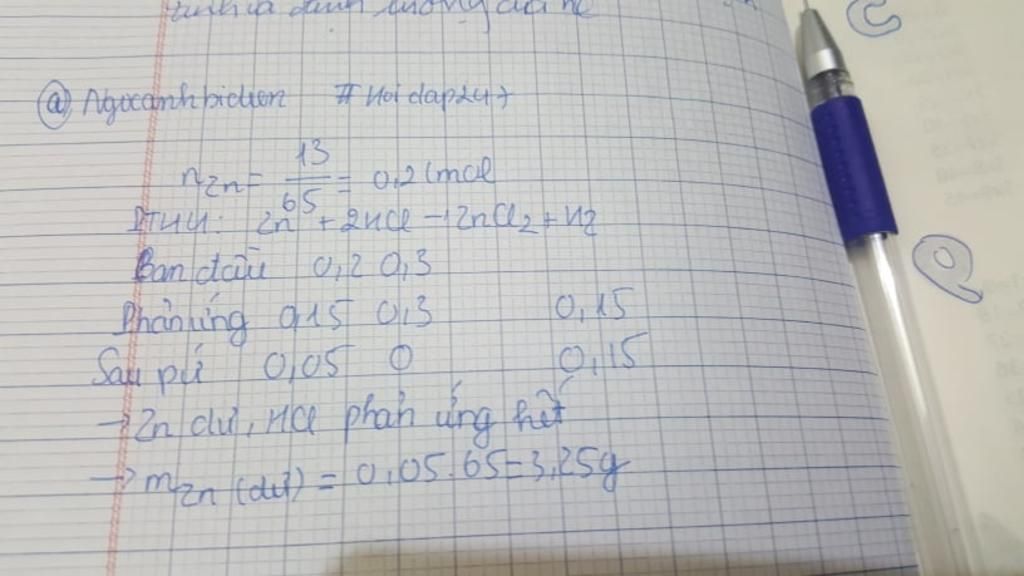 @ Ngocanhbidien # Hoidap247
nZn = 13/65 = 0,2 (mol
PTHH: Zn + 2HCl → ZnCl2 + H2
Ban đầu 0,2 0,3
Phản ứng 0,15 0,3 0,15
Sau pứ 0,05 0 0,15
→ Zn dư, HCl phản ứng hết
→ mZn (dư) = 0,05.65=3,25g